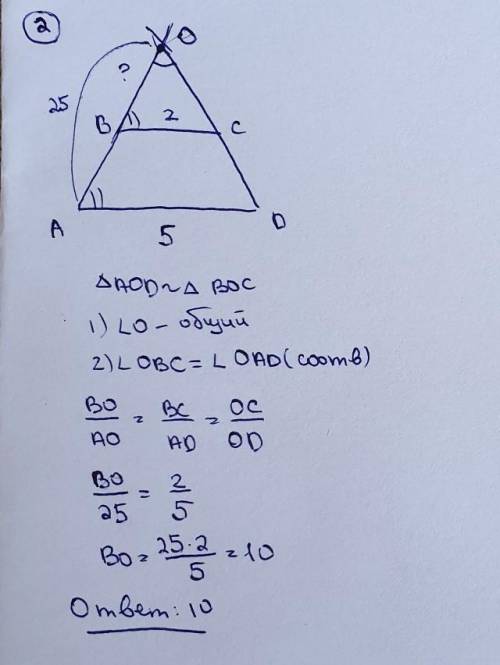 2
O
?
25
B 1) 2 C
A 1) D
5
△AOD ~ △ BOC
1) ∠O – общий
2) ∠OBC = ∠OAD (соотв)
BO/AO = BC/AD = OC/OD
BO/25 = 2/5
BO = 25·2/5 = 10
Ответ: 10